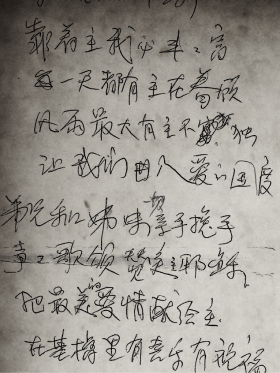 靠着主我必丰丰富
每一天都有主在眷顾
风雨最大有主不孤独
让我们田入爱的国度
弟兄和姊妹手挽手
章章歌颂赞美主耶稣
把最美爱情献给主
在基督里有喜乐有祝福